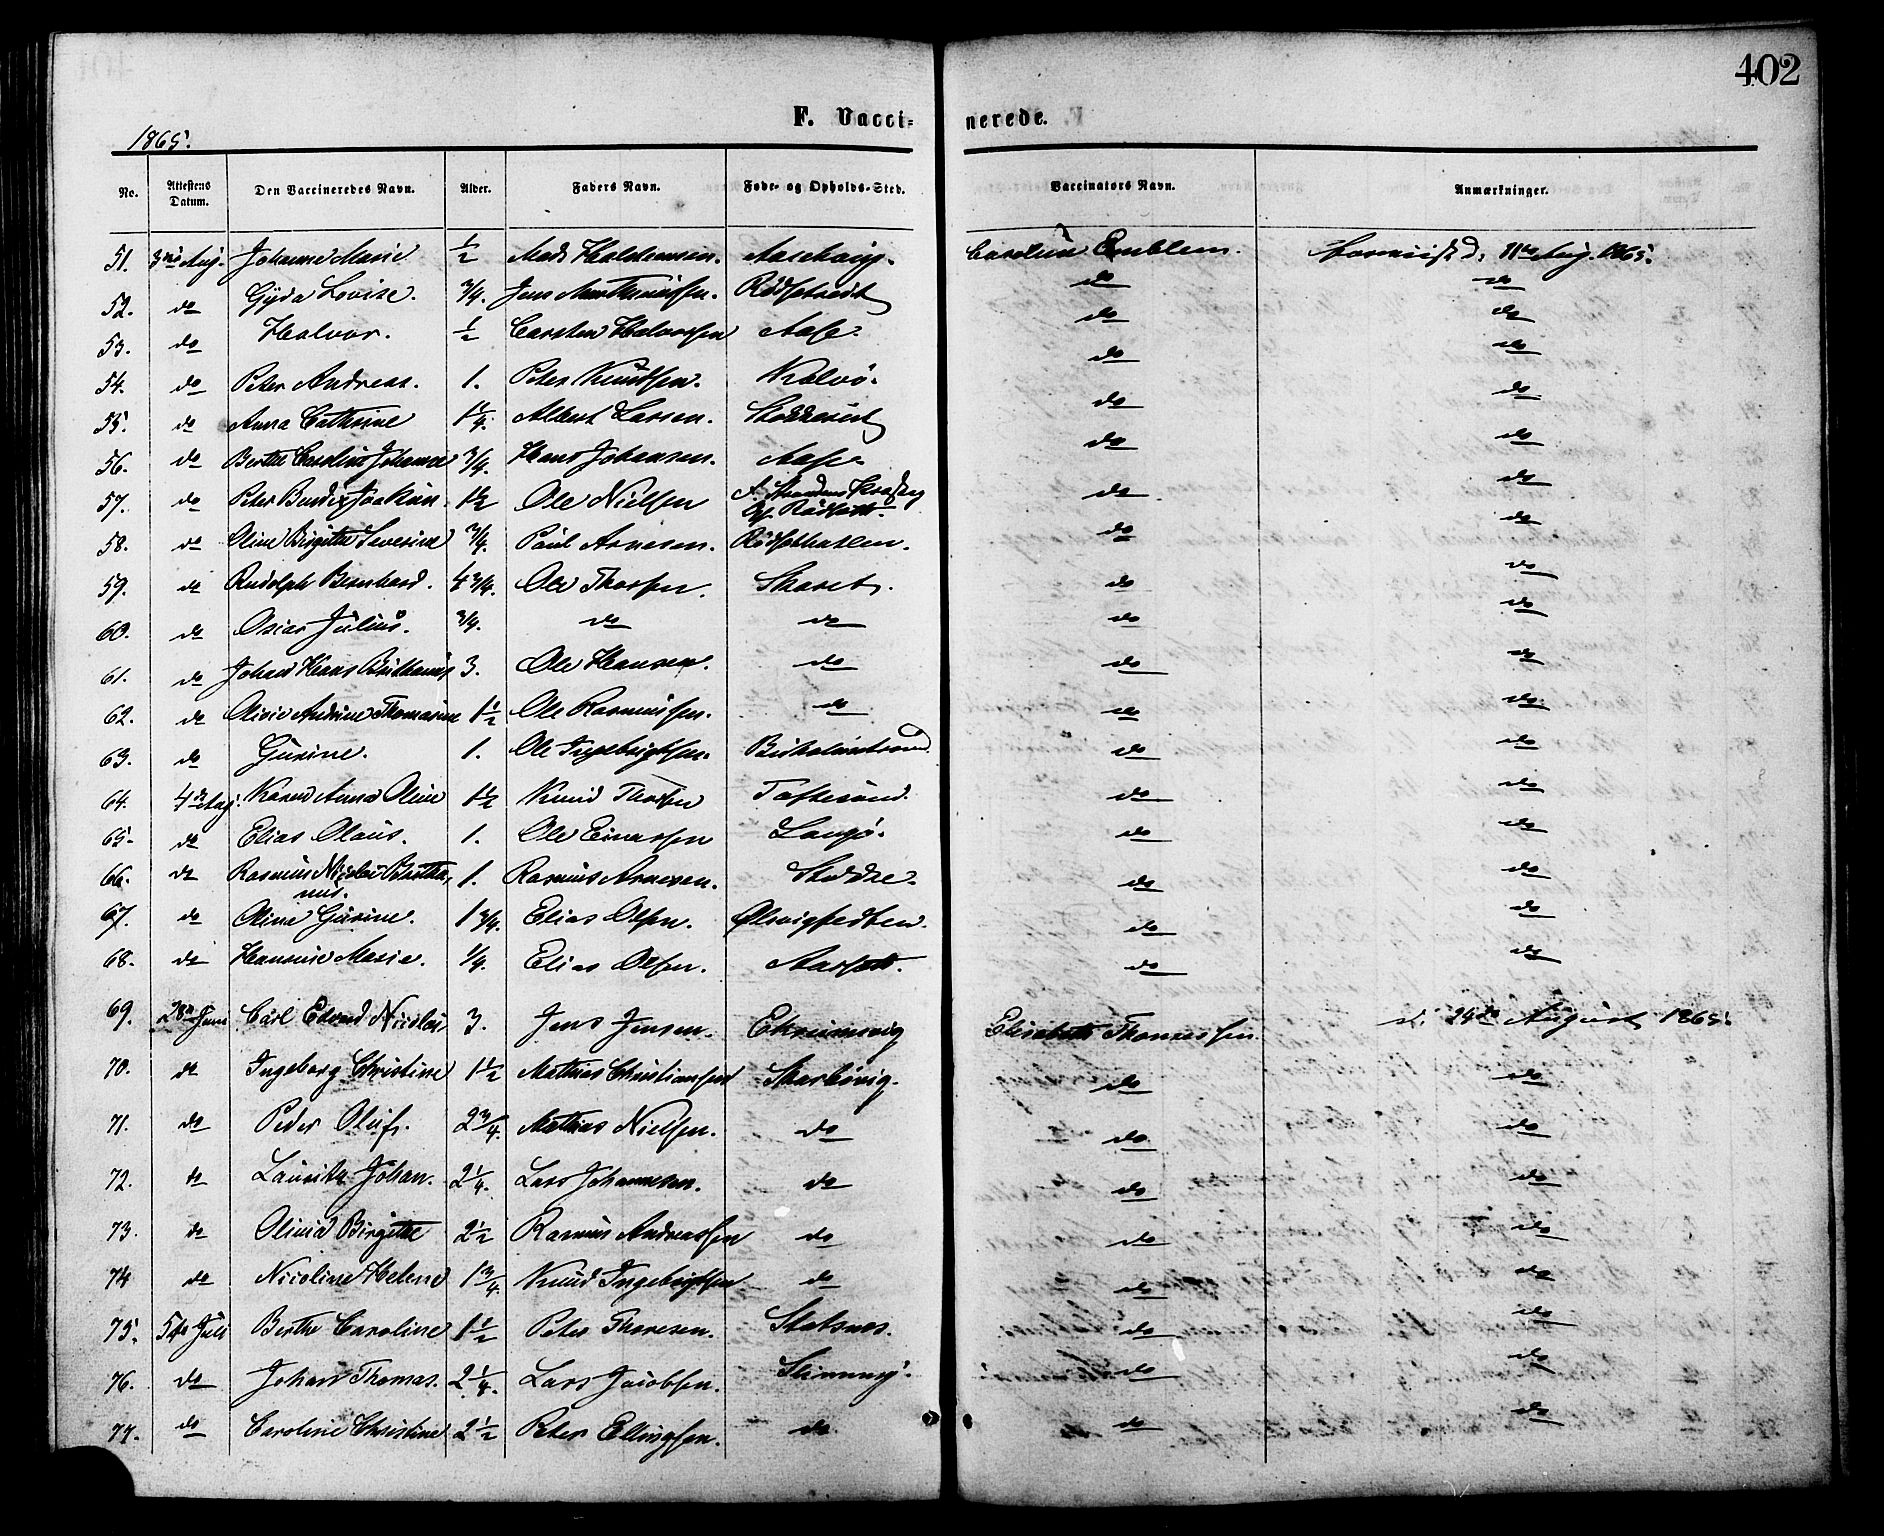 402
F. Vacci-
nerede.
1865.
No. Attestens Datum. Den Vaccineredes Navn. Alder. Faders Navn. Føde- og Opholds-Sted. Vaccinators Navn. Anmærkninger.
51. 3die Aug. Johanne Marie 1/2 Mads Aasehoug. Emblem. d. 11te Aug. 1865.
52. do Gÿda Lovise. 3/4. Jens Rødsetvedt do do
53. do Halvor. 1/2 Carsten Halvorsen Aase. do do
54. do Peter Andreas. 1. Peter Knudsen. Kalvø. do do
55. do Anna Cathrine 1 1/4 Albert Larsen. do do
56. do Berthe Caroline Johanne 3/4. Hans Johansen. Aase. do do
57. do Peter Joakim. 1 1/2 Ole Nielsen do do
58. do Oline Birgitte Severine 3/4. Paul Arnesen. do do
59. do Rudolph Bernhard. 4 3/4. Ole Thorsen. Skaret. do do
60. do Oscar Julius. 3/4. do do do do
61. do Johan Hans 3. Ole Hansen. do do do
62. do Andrine Thomasine 1 1/2 Ole Rasmussen. do do do
63. do Gurine. 1. Ole Ingebrigtsen. do do
64. 4de Aug. Karen Anna Oline 1 1/2 Knud Toftesund. do do
65. do Elias Olaus. 1. Ole Einarsen Langø. do do
66. do Rasmus Nicolai Berthanius. 1. Rasmus Arnesen. Stokke. do do
67. do Oline Gurine. 1 3/4. Elias Olsen. do do
68. do Hansine Marie. 1/4. Elias Olsen. Aarset. do do
69. 28de Juni Carl Edvard Nicolai 3. Jens Jensen. Elisabeth Thomassen. d. 24de August 1865.
70. do Ingeborg Christine 1 1/2 Mathias Christiansen Skarbøvig. do do
71. do Peder Oluf. 2 3/4. Mathias Nielsen. do do do
72. do Lauritz Johan. 2 1/4. Lars Johannesen. do do do
73. do Olivia Birgitte 2 1/2 Rasmus Andreassen do do do
74 do Nicoline Helene 1 3/4. Knud Ingebrigtsen do do do
75. 5te Juli Berthe Caroline 1 1/2 Peter Thoresen. do do
76. do Johan Thomas. 2 1/4. Lars Jacobsen. do do
77. do Caroline Christine 2 1/2 Peter Ellingsen. do do do